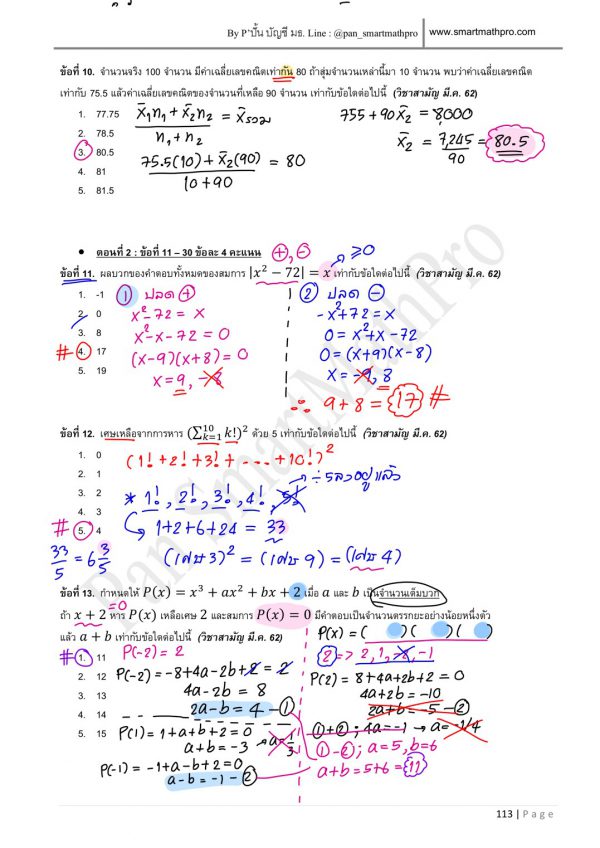 By P'ปั้น บัญชี มธ. Line : @pan_smartmathpro www.smartmathpro.com
ข้อที่ 10. จำนวนจริง 100 จำนวน มีค่าเฉลี่ยเลขคณิตเท่ากัน 80 ถ้าสุ่มจำนวนเหล่านี้มา 10 จำนวน พบว่าค่าเฉลี่ยเลขคณิต
เท่ากับ 75.5 แล้วค่าเฉลี่ยเลขคณิตของจำนวนที่เหลือ 90 จำนวน เท่ากับข้อใดต่อไปนี้ (วิชาสามัญ มี.ค. 62)
1. 77.75
2. 78.5
3. 80.5
4. 81
5. 81.5
x̄₁n₁ + x̄₂n₂ / n₁ + n₂ = x̄รวม
75.5(10) + x̄₂(90) / 10 + 90 = 80
755 + 90x̄₂ = 8000
x̄₂ = 7,245 / 90 = 80.5
• ตอนที่ 2 : ข้อที่ 11 – 30 ข้อละ 4 คะแนน
+, - ≥0
ข้อที่ 11. ผลบวกของคำตอบทั้งหมดของสมการ |x² − 72| = x เท่ากับข้อใดต่อไปนี้ (วิชาสามัญ มี.ค. 62)
1. -1
2. 0
3. 8
# 4. 17
5. 19
① ปลด +
x² - 72 = x
x² - x - 72 = 0
(x-9)(x+8) = 0
x = 9, -8
② ปลด -
-x² + 72 = x
0 = x² + x - 72
0 = (x+9)(x-8)
x = -9, 8
∴ 9 + 8 = 17 #
ข้อที่ 12. เศษเหลือจากการหาร (∑¹⁰ₖ₌₁ k!)² ด้วย 5 เท่ากับข้อใดต่อไปนี้ (วิชาสามัญ มี.ค. 62)
1. 0
2. 1
3. 2
4. 3
# 5. 4
(1! + 2! + 3! + ... + 10!)²
* 1!, 2!, 3!, 4!, 5! → ÷5ลงอยู่แล้ว
1+2+6+24 = 33
33/5 = 6 3/5
(เศษ 3)² = (เศษ 9) = (เศษ 4)
ข้อที่ 13. กำหนดให้ P(x) = x³ + ax² + bx + 2 เมื่อ a และ b เป็นจำนวนเต็มบวก
=0
ถ้า x + 2 หาร P(x) เหลือเศษ 2 และสมการ P(x) = 0 มีคำตอบเป็นจำนวนตรรกยะอย่างน้อยหนึ่งตัว
แล้ว a + b เท่ากับข้อใดต่อไปนี้ (วิชาสามัญ มี.ค. 62)
# 1. 11
2. 12
3. 13
4. 14
5. 15
P(-2) = 2
P(-2) = -8+4a-2b+2 = 2
4a-2b = 8
2a-b = 4 - ①
P(1) = 1+a+b+2 = 0
a+b = -3 → a = 1/3
P(-1) = -1+a-b+2 = 0
a-b = -1 - ②
P(x) = ( )( )( )
2 -> 2, 1, -2, -1
P(2) = 8+4a+2b+2 = 0
4a+2b = -10
2a+b = -5 - ②
①+②; 4a = -1 → a = -1/4
①-②; a=5, b=6
a+b = 5+6 = 11
Pan SmartMathPro
113 | Page